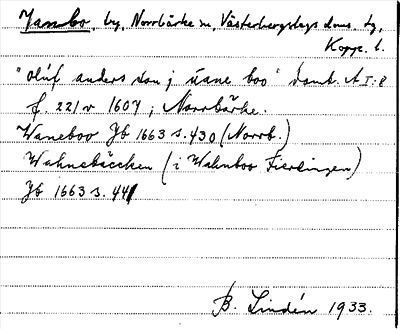 Vanbo, by, Norrbärke sn, Västerbergslags doms. tg,
Kopp. l.
"oluf anders son j uane boo" Domb. A I:8
f. 221v 1607; Norrbärke.
Waneboo Jb 1663 s. 430 (Norrb.)
Wahnebäccken (i Wahnboo Fierdingen)
Jb 1663 s. 441
B. Lindén 1933.